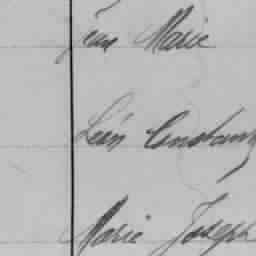 Jean Marie
Léon Constant
Marie Joseph